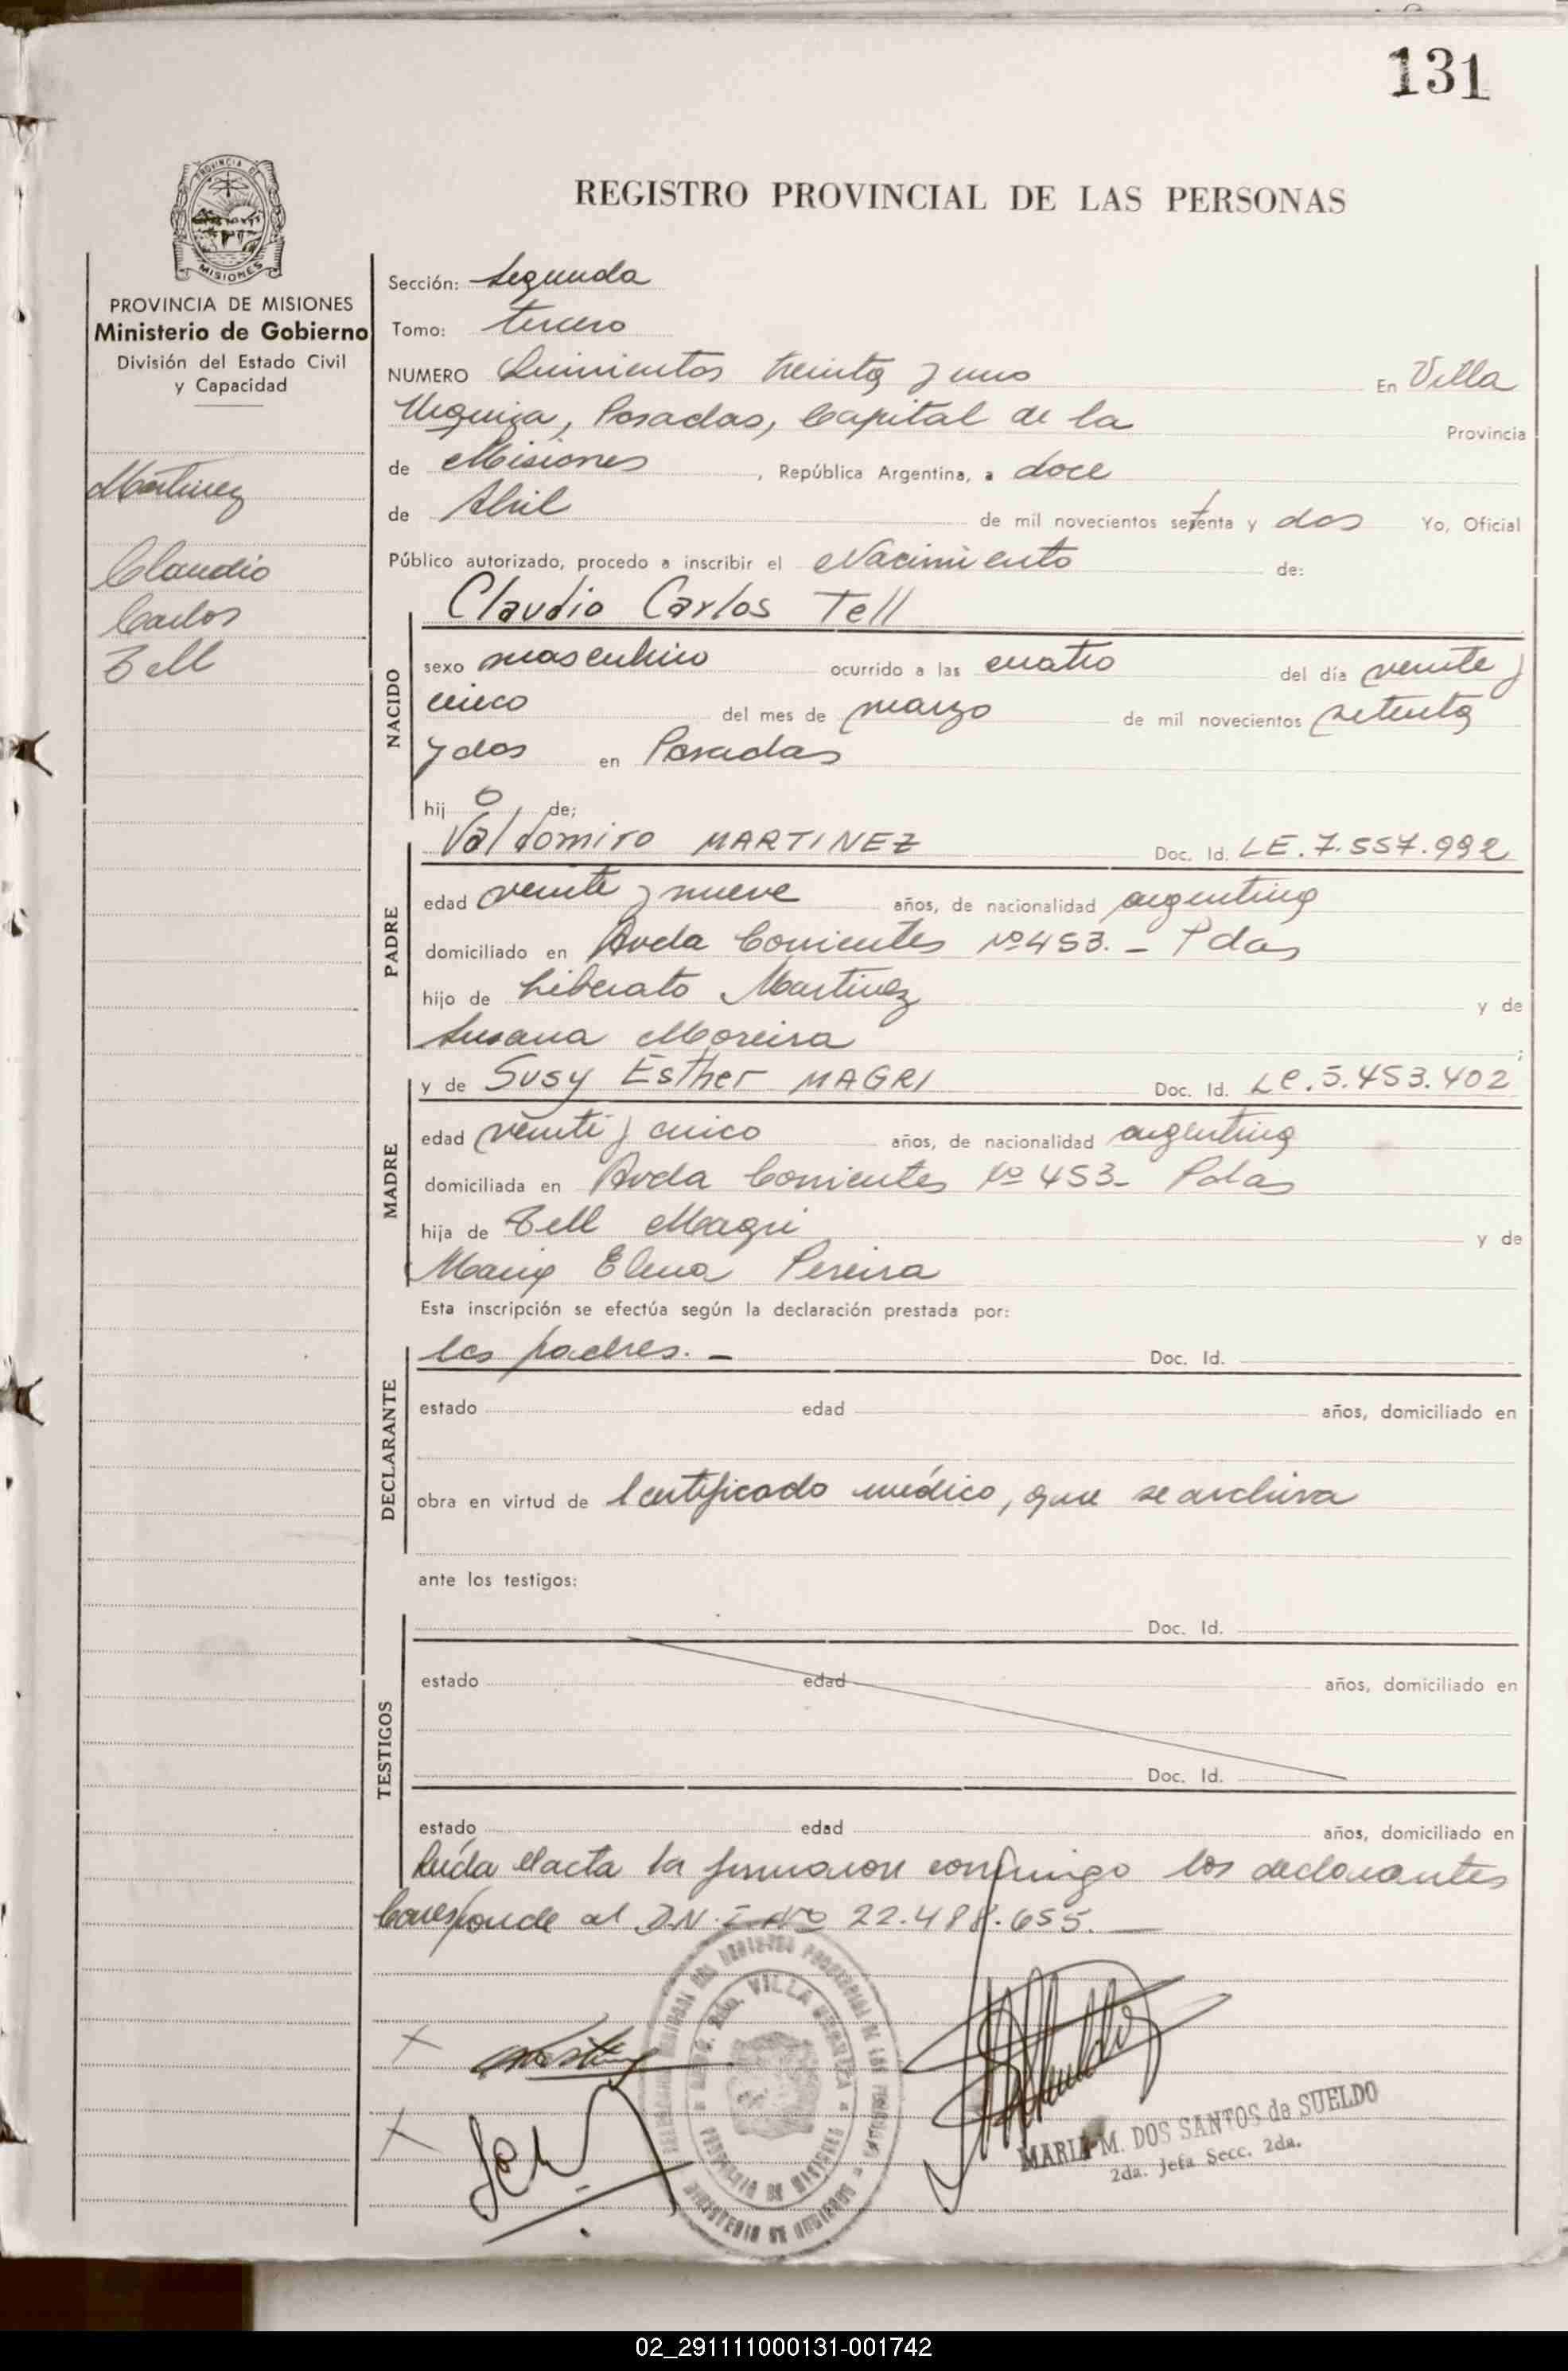 131
REGISTRO PROVINCIAL DE LAS PERSONAS
PROVINCIA DE
MISIONES
PROVINCIA DE MISIONES
Ministerio de Gobierno
División del Estado Civil
y Capacidad
Martinez
Claudio
Carlos
Tell
Sección: Segunda
Tomo: tercero
NUMERO Quinientos treinta y uno En Villa
Urquiza, Posadas, Capital de la Provincia
de Misiones, República Argentina, a doce
de Abril de mil novecientos setenta y dos Yo, Oficial
Público autorizado, procedo a inscribir el Nacimiento de:
Claudio Carlos Tell
NACIDO
sexo masculino ocurrido a las cuatro del día veinte y
cinco del mes de marzo de mil novecientos setenta
y dos en Posadas
hij o de;
Valdomiro MARTINEZ Doc. Id. LE. 7.557.992
PADRE
edad veinte y nueve años, de nacionalidad argentina
domiciliado en Avda Corrientes Nº 453. - Pdas
hijo de Liberato Martinez y de
Susana Moreira ;
y de Susy Esther MAGRI Doc. Id. LC. 5.453.402
MADRE
edad veinte y cinco años, de nacionalidad argentina
domiciliada en Avda Corrientes Nº 453- Pdas
hija de Tell Magri y de
Maria Elena Pereira
Esta inscripción se efectúa según la declaración prestada por:
los padres. - Doc. Id.
DECLARANTE
estado edad años, domiciliado en
obra en virtud de Certificado médico, que se archiva
ante los testigos:
Doc. Id.
TESTIGOS
estado edad años, domiciliado en
Doc. Id.
estado edad años, domiciliado en
Leída el acta la firmaron conmigo los declarantes
Corresponde al D.N.I Nº 22.488.655. —
VILLA URQUIZA
PROVINCIA DE MISIONES
MINISTERIO DE GOBIERNO
MARIA M. DOS SANTOS de SUELDO
2da. Jefa Secc. 2da.
02_291111000131-001742